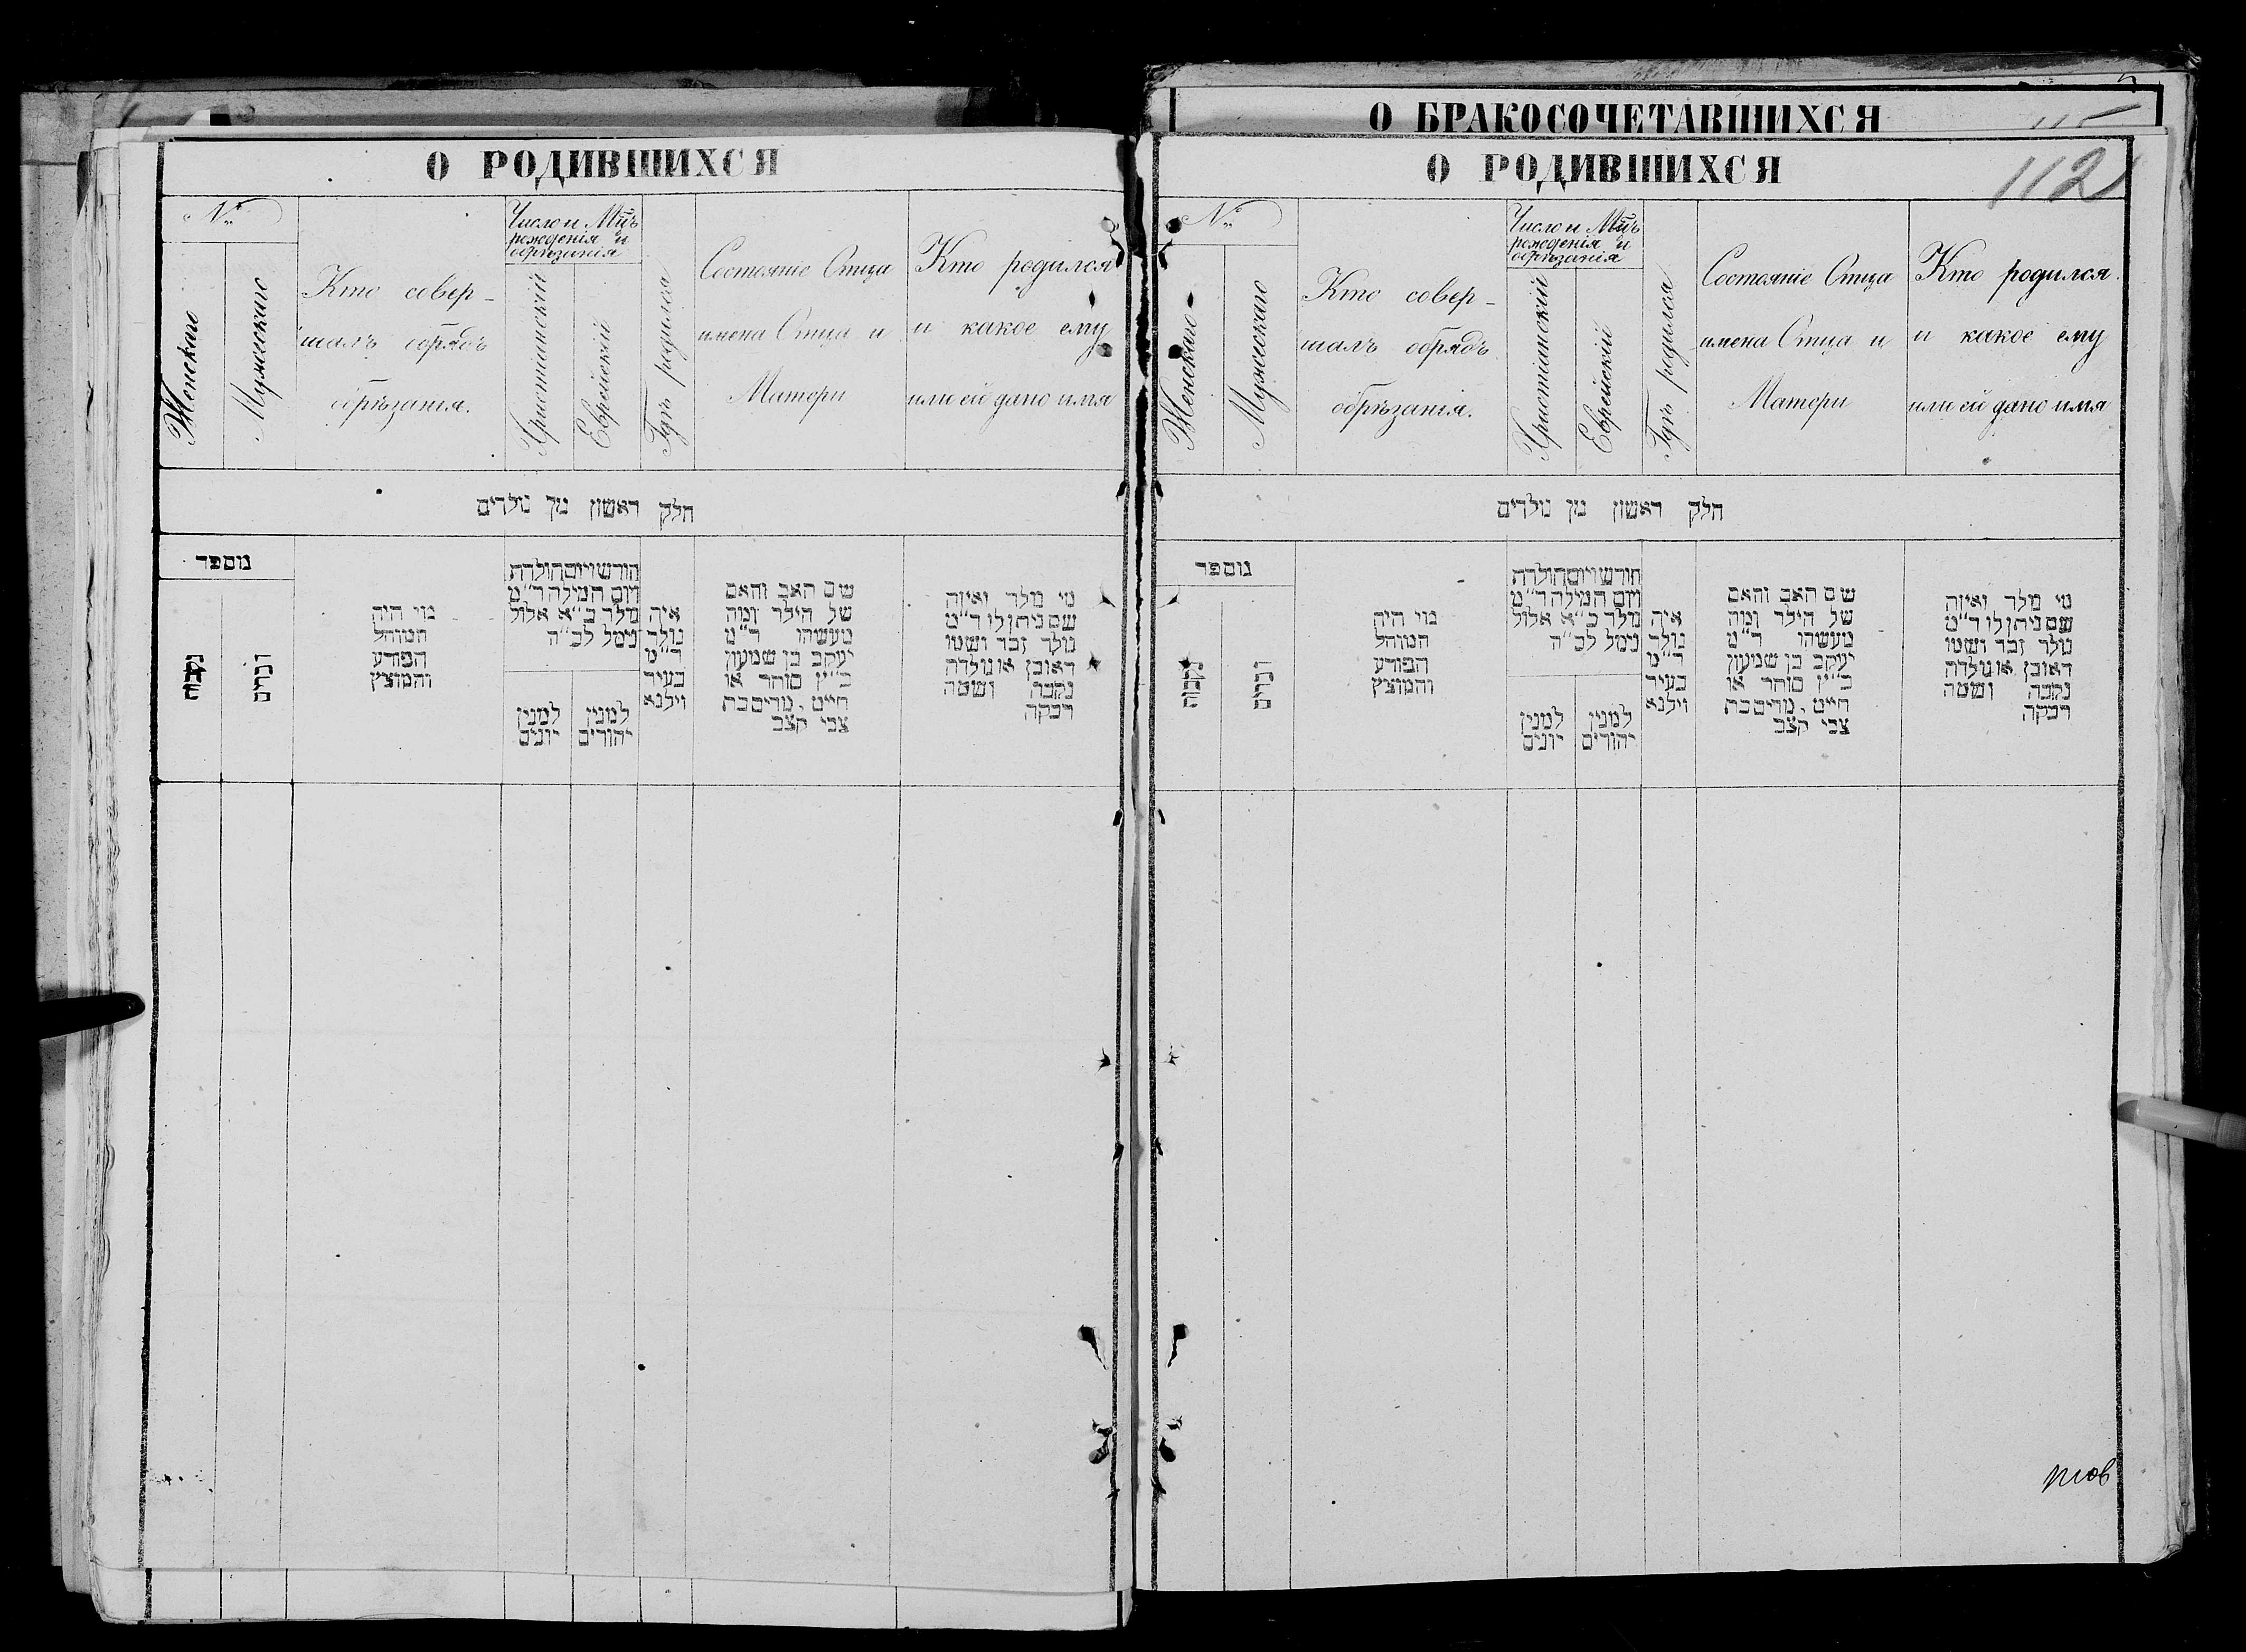 О РОДИВШИХСЯ
№
Женскаго
Мужескаго
Кто совер-
шалъ обрядъ
обрѣзанія.
Число и Мц̃ъ
рожденія и
обрѣзанія
Христіанскій
Еврейскій
Гдѣ родился
Состояніе Отца
имена Отца и
Матери
Кто родился
и какое ему
или ей дано имя
חלק ראשון מן נולדים
מוספר
נקבות
זכרים
מוי היה
המוהל
הפורע
והמוצץ
חורש ויום הולדת
ויום המילה ד״מ
נולד כ״א אלול
נימל לכ״ה
למנין
יונים
למנין
יהודים
איה
נולד
ד״מ
בעיר
וילנא
שם האב והאם
של הילד ומה
מעשהו ד״מ
יעקב בן שמעון
כ״ץ סוחר או
חייט, מרים בת
צבי קצב
מי נולד ואיזה
שם ניתן לו ד״מ
נולד זכר ושמו
ראובן או נולדה
נקבה ושמה
רבקה
О БРАКОСОЧЕТАВШИХСЯ
115
О РОДИВШИХСЯ
112
№
Женскаго
Мужескаго
Кто совер-
шалъ обрядъ
обрѣзанія.
Число и Мц̃ъ
рожденія и
обрѣзанія
Христіанскій
Еврейскій
Гдѣ родился
Состояніе Отца
имена Отца и
Матери
Кто родился
и какое ему
или ей дано имя
חלק ראשון מן נולדים
מוספר
נקבות
זכרים
מוי היה
המוהל
הפורע
והמוצץ
חורש ויום הולדת
ויום המילה ד״מ
נולד כ״א אלול
נימל לכ״ה
למנין
יונים
למנין
יהודים
איה
נולד
ד״מ
בעיר
וילנא
שם האב והאם
של הילד ומה
מעשהו ד״מ
יעקב בן שמעון
כ״ץ סוחר או
חייט, מרים בת
צבי קצב
מי נולד ואיזה
שם ניתן לו ד״מ
נולד זכר ושמו
ראובן או נולדה
נקבה ושמה
רבקה